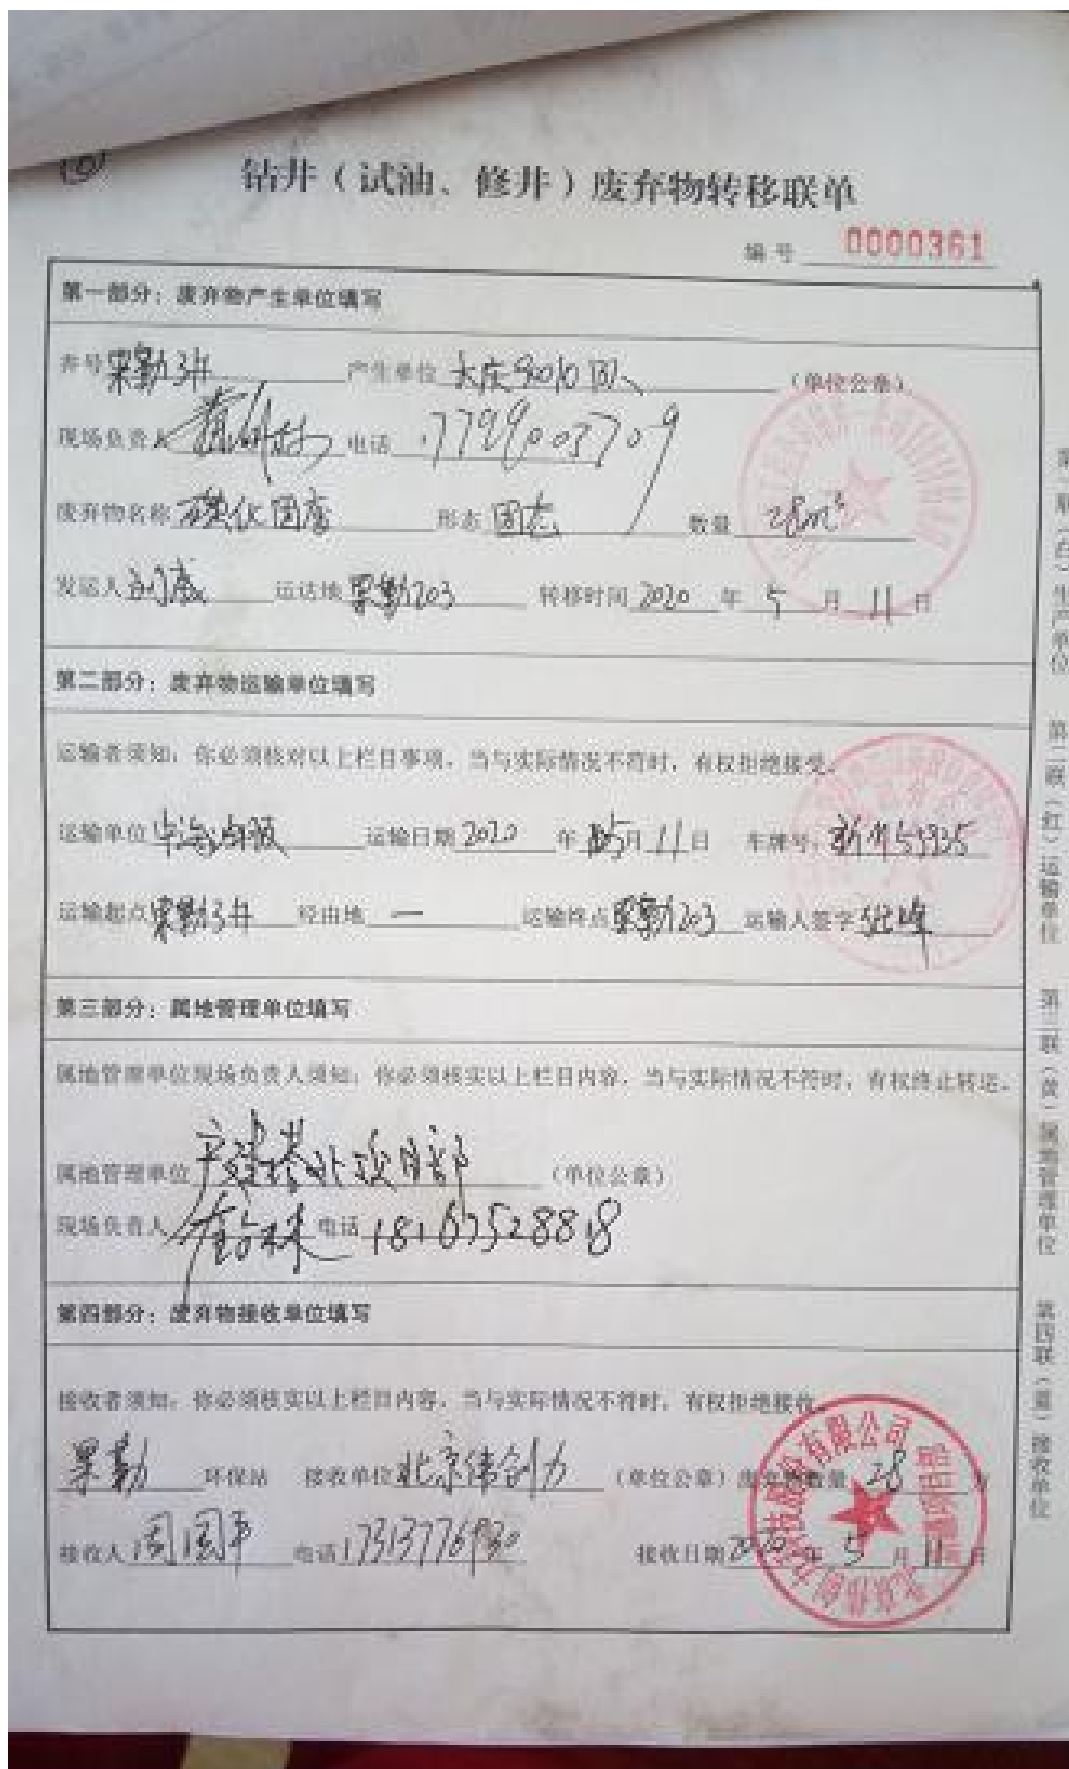 钻井（试油、修井）废弃物转移联单
编号 0000361
第一部分：废弃物产生单位填写
井号 果勤3井 产生单位 大庆9010队 （单位公章）
现场负责人 电话 17799003709
废弃物名称 磺化固废 形态 固态 数量 28m³
发运人 运达地 果勤203 转移时间 2020 年 5 月 11 日
第二部分：废弃物运输单位填写
运输者须知：你必须核对以上栏目事项，当与实际情况不符时，有权拒绝接受。
运输单位 运输日期 2020 年 5 月 11 日 车牌号：
运输起点 果勤3井 经由地 — 运输终点 果勤203 运输人签字
第三部分：属地管理单位填写
属地管理单位现场负责人须知：你必须核实以上栏目内容，当与实际情况不符时，有权终止转运。
属地管理单位 项目部 （单位公章）
现场负责人 电话 18167528818
第四部分：废弃物接收单位填写
接收者须知：你必须核实以上栏目内容，当与实际情况不符时，有权拒绝接收。
果勤 环保站 接收单位 北京伟创力 （单位公章） 废弃物数量 28 方
接收人 周国平 电话 17313776930 接收日期 2020 年 5 月 11 日
第一联（白）生产单位 第二联（红）运输单位 第三联（黄）属地管理单位 第四联（蓝）接收单位